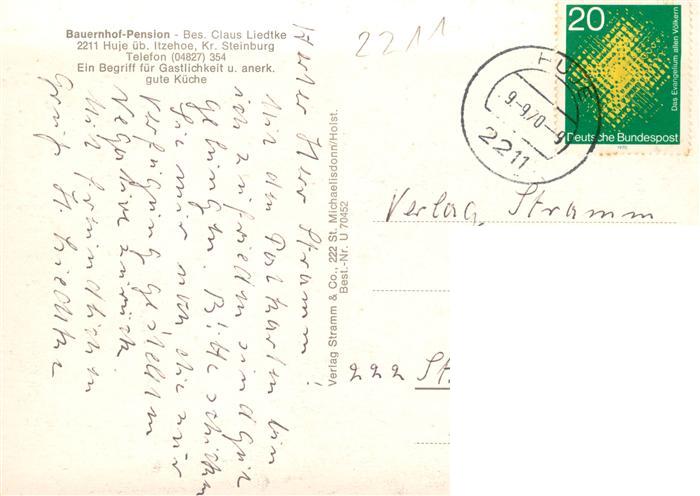 Bauernhof-Pension - Bes. Claus Liedtke
2211 Huje üb. Itzehoe, Kr. Steinburg
Telefon (04827) 354
Ein Begriff für Gastlichkeit u. anerk.
gute Küche
2211
20
Das Evangelium allen Völkern
Deutsche Bundespost
1970
HUJE
-9.-9.70-9
2211
Werter Herr Stramm!
Mit den Postkarten bin
ich zufrieden sind gut
gelungen. Bitte schicken
Sie mir noch die mir
Verfügung gestellten
Negative zurück.
Mit freundlichen
Gruß H. Liedtke
Verlag Stramm & Co., 222 St. Michaelisdonn/Holst.
Best.-Nr. U 70452
Verlag, Stramm
222 St.